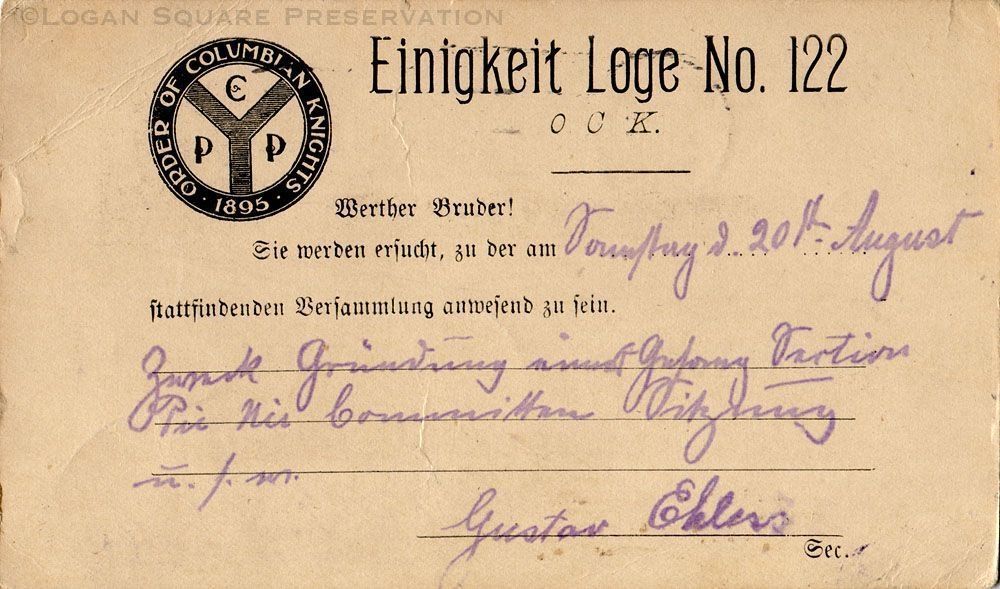 ©Logan Square Preservation
ORDER OF COLUMBIAN KNIGHTS
C
P P
· 1895 ·
Einigkeit Loge No. 122
O C K.
Werther Bruder!
Sie werden ersucht, zu der am Samstag d. 20st. August
stattfindenden Versammlung anwesend zu sein.
Zweck Gründung einer Gesang Section
Pic Nic Committee Sitzung
u. s. w.
Gustav Ehlers
Sec.